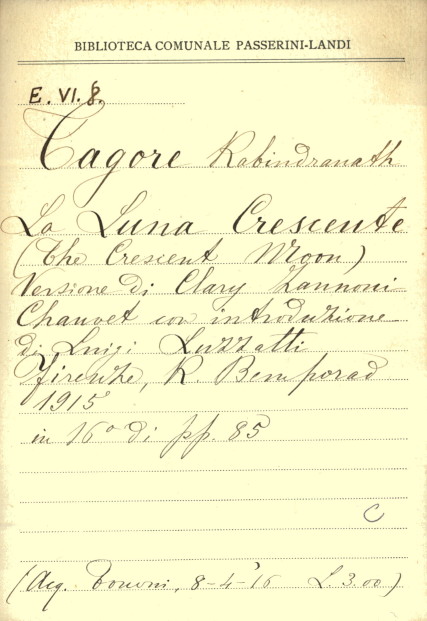 BIBLIOTECA COMUNALE PASSERINI-LANDI
E. VI. 8.
Tagore Rabindranath
La Luna Crescente
(The Crescent Moon)
Versione di Clary Zannoni
Chauvet con introduzione
di Luigi Luzzatti
Firenze, R. Bemporad
1915
in 16° di pp. 85
C
(Acq. 8-4-16 L. 3.00)